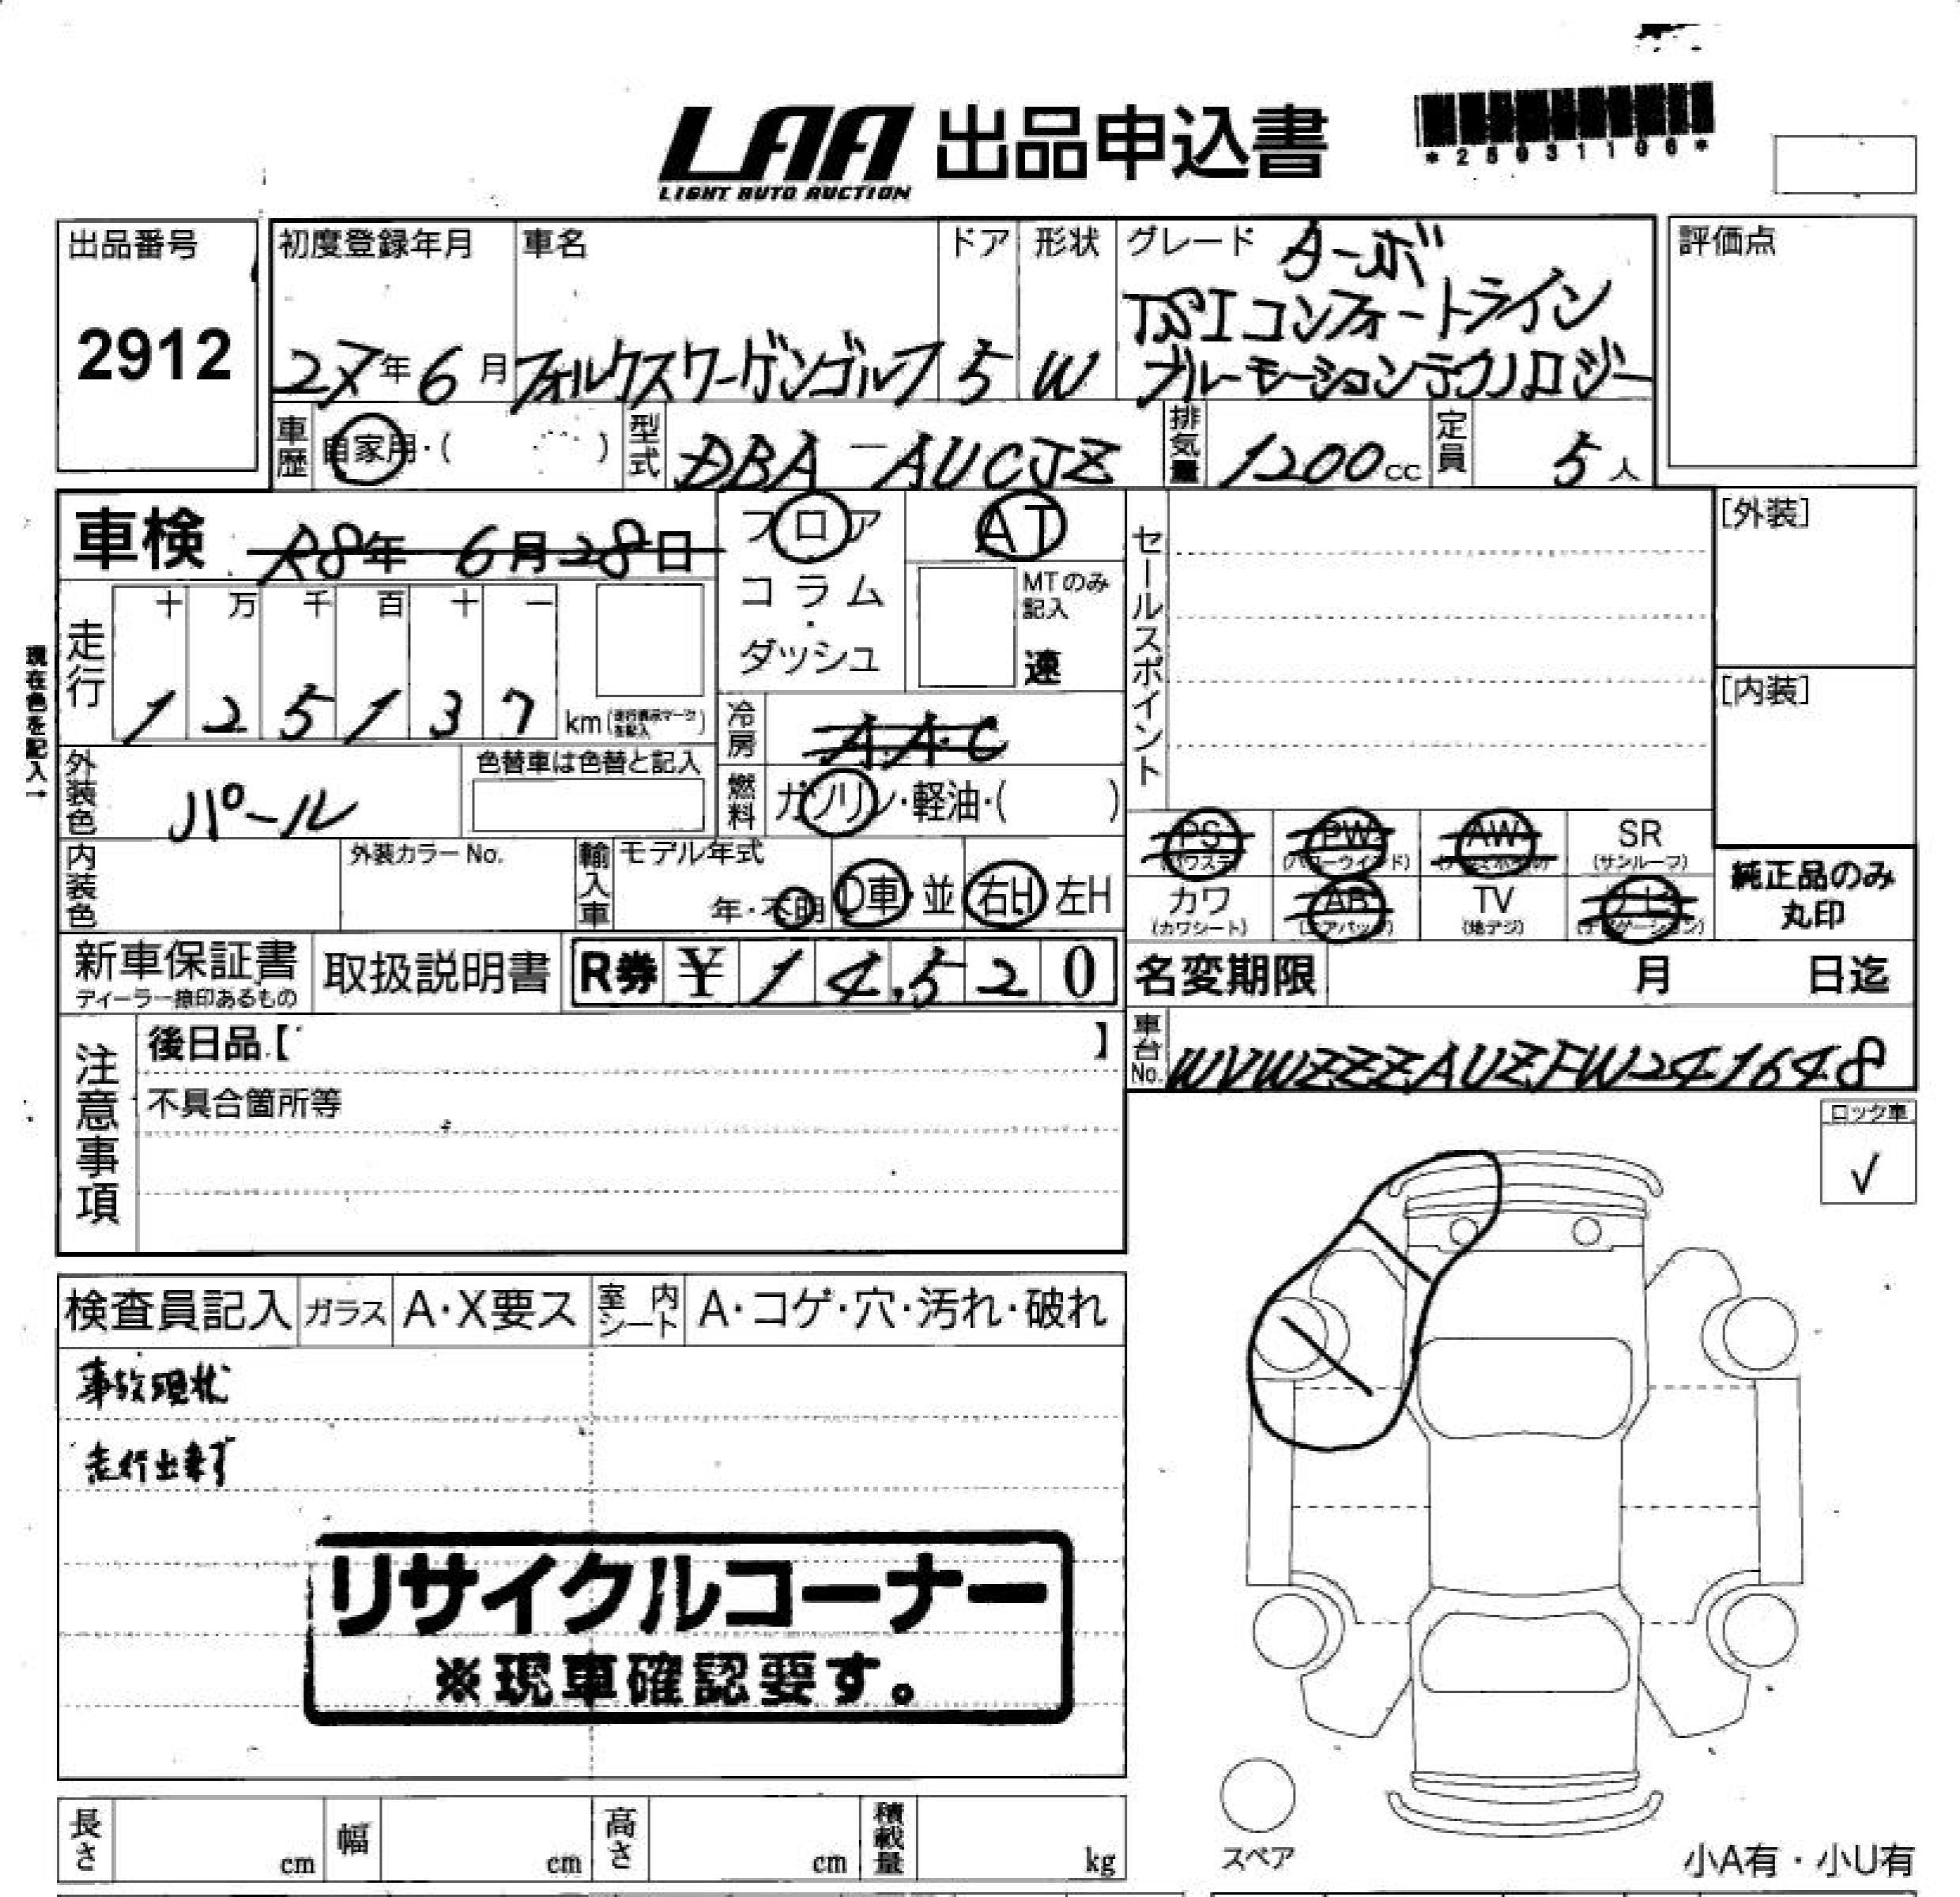 LAA 出品申込書
LIGHT AUTO AUCTION
*25031106*
出品番号
2912
初度登録年月
27年6月
車名
フォルクスワーゲンゴルフ
ドア
5
形状
W
グレード
ターボ
TSIコンフォートライン
ブルーモーションテクノロジー
評価点
車歴
自家用・( )
型式
DBA-AUCJZ
排気量
1200cc
定員
5人
車検
R8年 6月28日
フロア
コラム
・
ダッシュ
AT
MTのみ
記入
速
セールスポイント
[外装]
[内装]
現在色を記入→
走行
十 万 千 百 十 一
1 2 5 1 3 7 km
冷房
AAC
燃料
ガソリン・軽油・( )
外装色
パール
色替車は色替と記入
内装色
外装カラーNo.
輸入車
モデル年式
年・不明
D車・並
右H 左H
PS
(パワステ)
PW
(パワーウインド)
AW
SR
(サンルーフ)
カワ
(カワシート)
AB
(エアバッグ)
TV
(地デジ)
ナビ
(ナビゲーション)
純正品のみ
丸印
新車保証書
ディーラー捺印あるもの
取扱説明書
R券 ¥ 14,520
名変期限 月 日迄
注意事項
後日品【 】
不具合箇所等
車台No.
WVWZZZAUZFW241648
ロック車
√
検査員記入
ガラス
A・X要ス
室内シート
A・コゲ・穴・汚れ・破れ
事故現状
走行出来ず
リサイクルコーナー
※現車確認要す。
スペア
小A有・小U有
長さ cm
幅 cm
高さ cm
積載量 kg